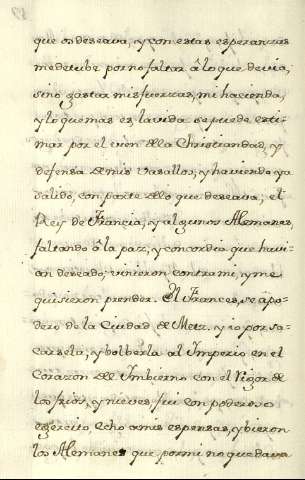 que os deseava, y con estas esperanzas
me detube por no faltar â lo que devia,
sino gastar mis fuerzas, mi hacienda,
y lo que mas es la vida se puede esti-
mar por el vien dela Christiandad, y
defensa de mis Vasallos, y haviendo ya
salido, con parte delo que deseava; el
Rei de Francia, y algunos Alemanes,
faltando â la paz, y concordia que havi-
an deseado; vinieron contra mi, y me
quisieron prender. El Frances, se apo-
dero de la Ciudad de Metz. y io por sa-
carsela, y bolberla al Imperio en el
Corazon del Imbierno con el Rigor de
los frios, y nieves fui con poderoso
egercito, echo a mis espensas, y bieron
los Alemanes que por mi no quedava